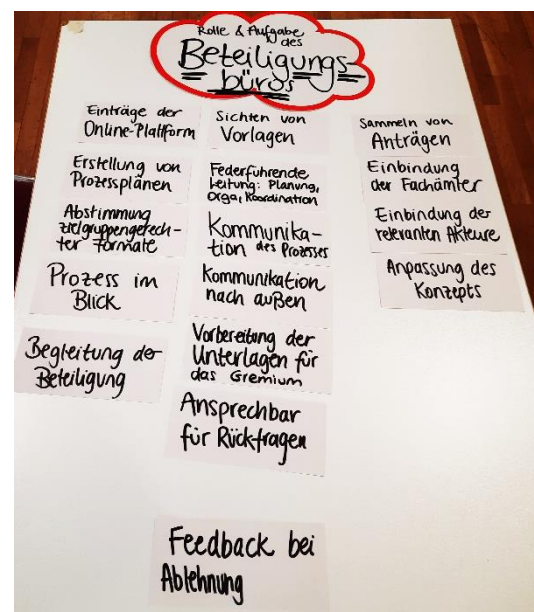 Rolle & Aufgabe
des
Beteiligungs-
büros
Einträge der
Online-Plattform
Erstellung von
Prozessplänen
Abstimmung
zielgruppengerech-
ter Formate
Prozess im
Blick
Begleitung der
Beteiligung
Sichten von
Vorlagen
Federführende
Leitung: Planung,
Orga, Koordination
Kommunika-
tion des Prozesses
Kommunikation
nach außen
Vorbereitung der
Unterlagen für
das Gremium
Ansprechbar
für Rückfragen
Feedback bei
Ablehnung
Sammeln von
Anträgen
Einbindung
der Fachämter
Einbindung der
relevanten Akteure
Anpassung des
Konzepts